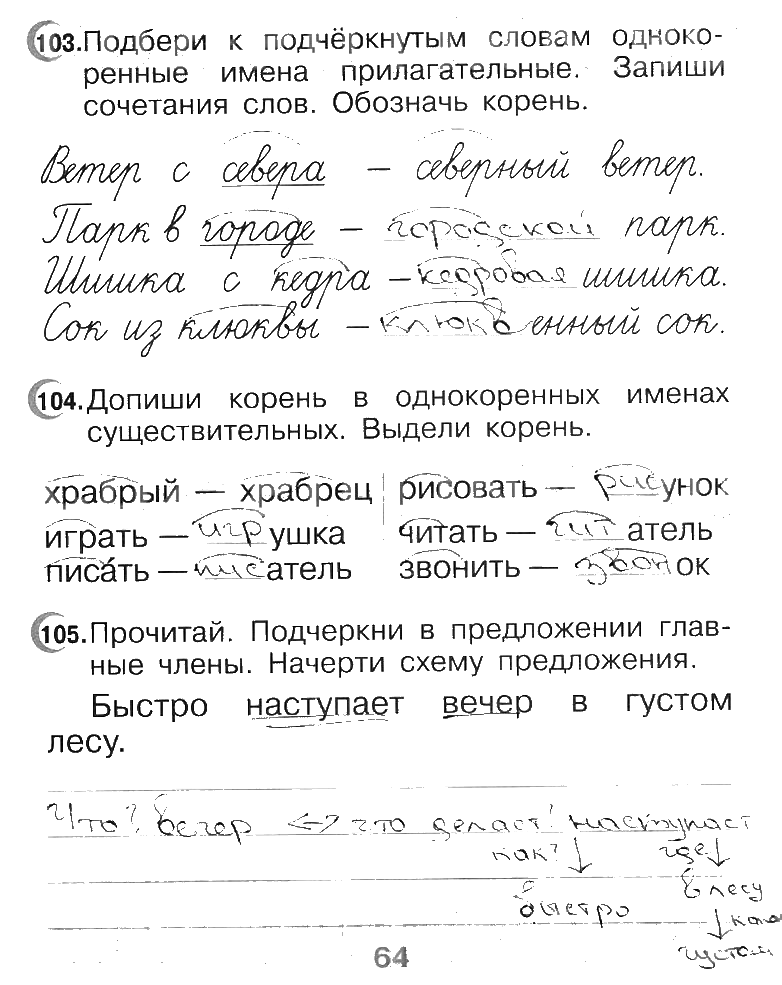 103. Подбери к подчёркнутым словам одноко-
ренные имена прилагательные. Запиши
сочетания слов. Обозначь корень.
Ветер с севера – северный ветер.
Парк в городе – городской парк.
Шишка с кедра – кедровая шишка.
Сок из клюквы – клюквенный сок.
104. Допиши корень в однокоренных именах
существительных. Выдели корень.
храбрый — храбрец рисовать — рисунок
играть — игрушка читать — читатель
писа́ть — писатель звонить — звонок
105. Прочитай. Подчеркни в предложении глав-
ные члены. Начерти схему предложения.
Быстро наступает вечер в густом
лесу.
Что? вечер <-> что делает? наступает
как? ↓ где ↓
быстро в лесу
↓
густом
64